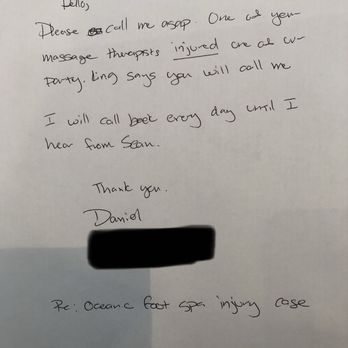 Hello,
Please call me asap. One of your
massage therapists injured one of our
party. King says you will call me
I will call back every day until I
hear from Sean.
Thank you.
Daniel
Re: Oceanc foot spa injury case